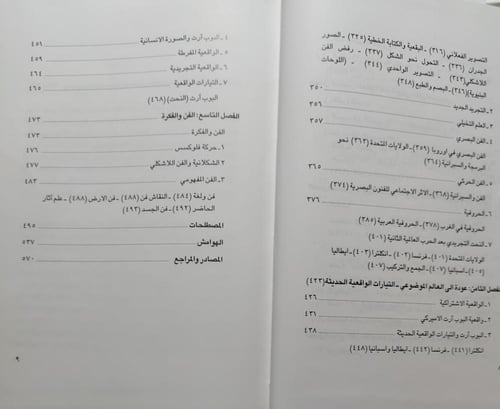 التصوير الفعلاني (٣١٦) ـ البقعية والكتابة الخطية (٣٢٥) ـ الصور
الجدران (٣٣٦) ـ التحول نحو الشكل (٣٣٧) ـ رفض الفن
اللاشكلي (٣٤٣) ـ التصوير الواحدي (٣٤٤) ـ (اللوحات
البنيوية) (٣٤٦) ـ البصم والطبع (٣٤٨)
٢ـ التجريد الجديد ٣٥٠
٣ـ العلم التخيلي ٣٥٦
٤ـ الفن البصري ٣٥٧
الفن البصري في اوروبا (٣٥٩) ـ الولايات المتحدة (٣٦٢) نحو
البرمجة والسبرانية (٣٦٤)
٥ـ الفن الحركي ٣٦٥
الفن والسبرانية (٣٦٨) ـ الاثر الاجتماعي للفنون البصرية (٣٧٤)
٦ـ الحروفية ٣٧٦
الحروفية في الغرب (٣٧٨) ـ الحروفية العربية (٣٨٥)
٧ـ النحت التجريدي بعد الحرب العالمية الثانية (٤٠١)
الولايات المتحدة (٤٠١) ـ فرنسا (٤٠٢) ـ انكلترا (٤٠٣) ـ ايطاليا
(٤٠٦) ـ اسبانيا (٤٠٧) ـ الجمع والتركيب (٤٠٧)
الفصل الثامن: عودة الى العالم الموضوعي ـ التيارات الواقعية الحديثة (٤٢٣)
١ـ الواقعية الاشتراكية ٤٢٦
٢ـ واقعية البوب آرت الاميركي ٤٣١
٣ـ البوب آرت والتيارات الواقعية الحديثة ٤٣٨
انكلترا (٤٤١) ـ فرنسا (٤٤٢) ـ ايطاليا واسبانيا (٤٤٨)
٤ـ البوب آرت والصورة الانسانية ٤٥١
٥ـ الواقعية المفرطة ٤٥٩
٦ـ الواقعية التجريدية ٤٦٤
٧ـ التيارات الواقعية ٤٦٥
البوب آرت (النحت) (٤٦٨)
الفصل التاسع: الفن والفكرة ٤٧٣
الفن والفكرة ٤٧٣
١ـ حركة فلوكسس ٤٧٦
٢ـ الشكلانية والفن اللاشكلي ٤٧٧
٣ـ الفن المفهومي ٤٨٣
فن ولغة (٤٨٤) ـ النقاش فن (٤٨٨) ـ فن الارض (٤٨٨) ـ علم آثار
الحاضر (٤٩٢) ـ فن الجسد (٤٩٣)
المصطلحات ٤٩٥
الهوامش ٥٣٧
المصادر والمراجع ٥٧٠
٩